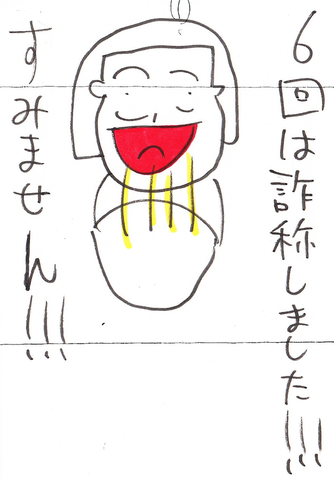 6回は詐称しました!!!
すみません!!!